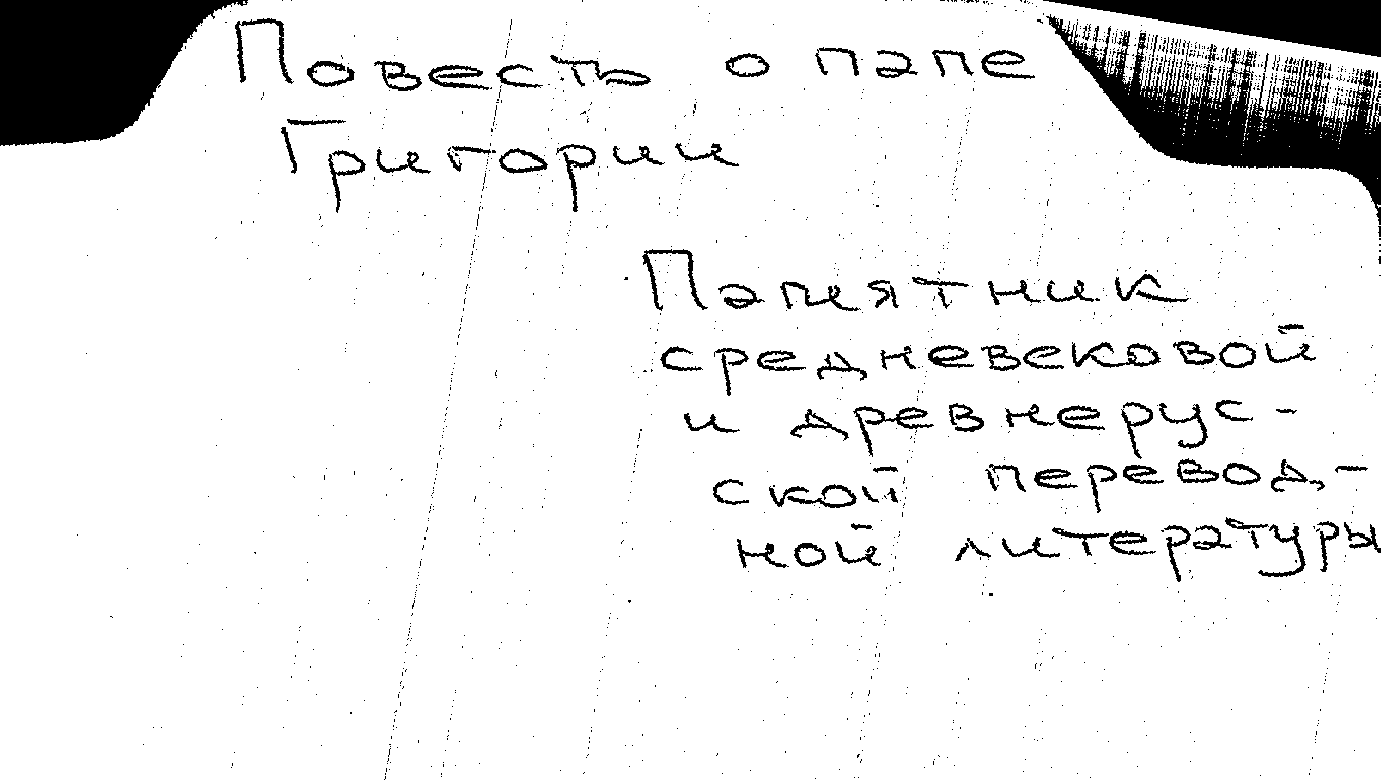 Повесть о папе
Григории
Памятник
средневековой
и древнерус-
ской перевод-
ной литературы